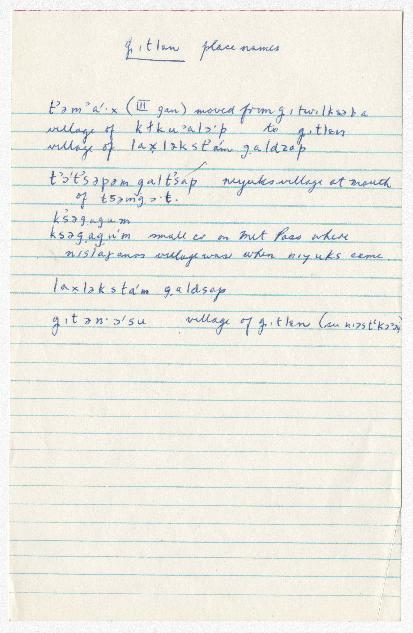 gˌıtlæn place names
t'əm'a'·x (II gan) moved from gˌıtwılksəba
village of kłku'alɔ'p to gˌıtlæn
village of laxləkst'am galdzəp
t'ɔ't'səpəm galt'sap niyuks village at mouth
of tsəmgɔ·t.
k'səgagum
ksəgˌagˌu'm small cr on Met Pass where
nislaganos village was when niyuks came
laxləksta'm gˌaldsap
gˌıtən·ɔ'su village of gˌıtlæn (su nıəst'kə'ɔs)